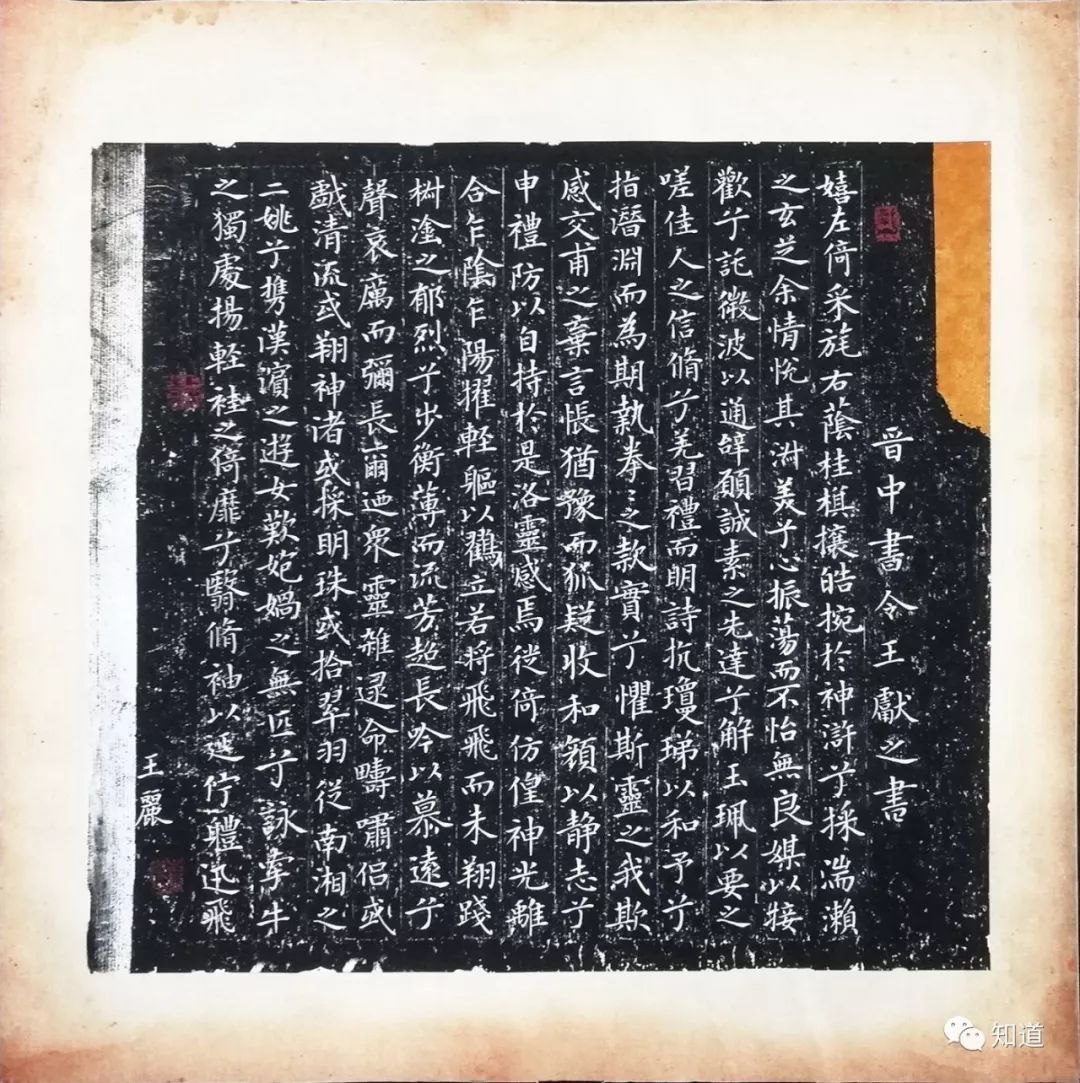 晋中書令王獻之書
嬉左倚采旄右蔭桂棋攘皓捥於神滸兮採湍瀬
之玄芝余情悅其淋美兮心振蕩而不怡無良媒以接
歡兮託微波以通辭願誠素之先達兮解玉珮以要之
嗟佳人之信脩兮羌習禮而明詩抗瓊珶以和予兮
指潛淵而為期執拳〻之款實兮懼斯靈之我欺
感交甫之棄言悵猶豫而狐疑收和顏以静志兮
申禮防以自持於是洛靈感焉徙倚仿偟神光離
合乍陰乍陽擢輕軀以鶴立若将飛飛而未翔踐
椒塗之郁烈兮步衡薄而流芳超長吟以慕遠兮
聲哀厲而彌長爾迺衆靈雜遝命疇嘯侣或
戲清流或翔神渚或採明珠或拾翠羽從南湘之
二姚兮攜漢濱之遊女歎媧之無匹兮詠牽牛
之獨處揚輕袿之倚靡兮翳脩袖以延佇軆迅飛
王麗
知道